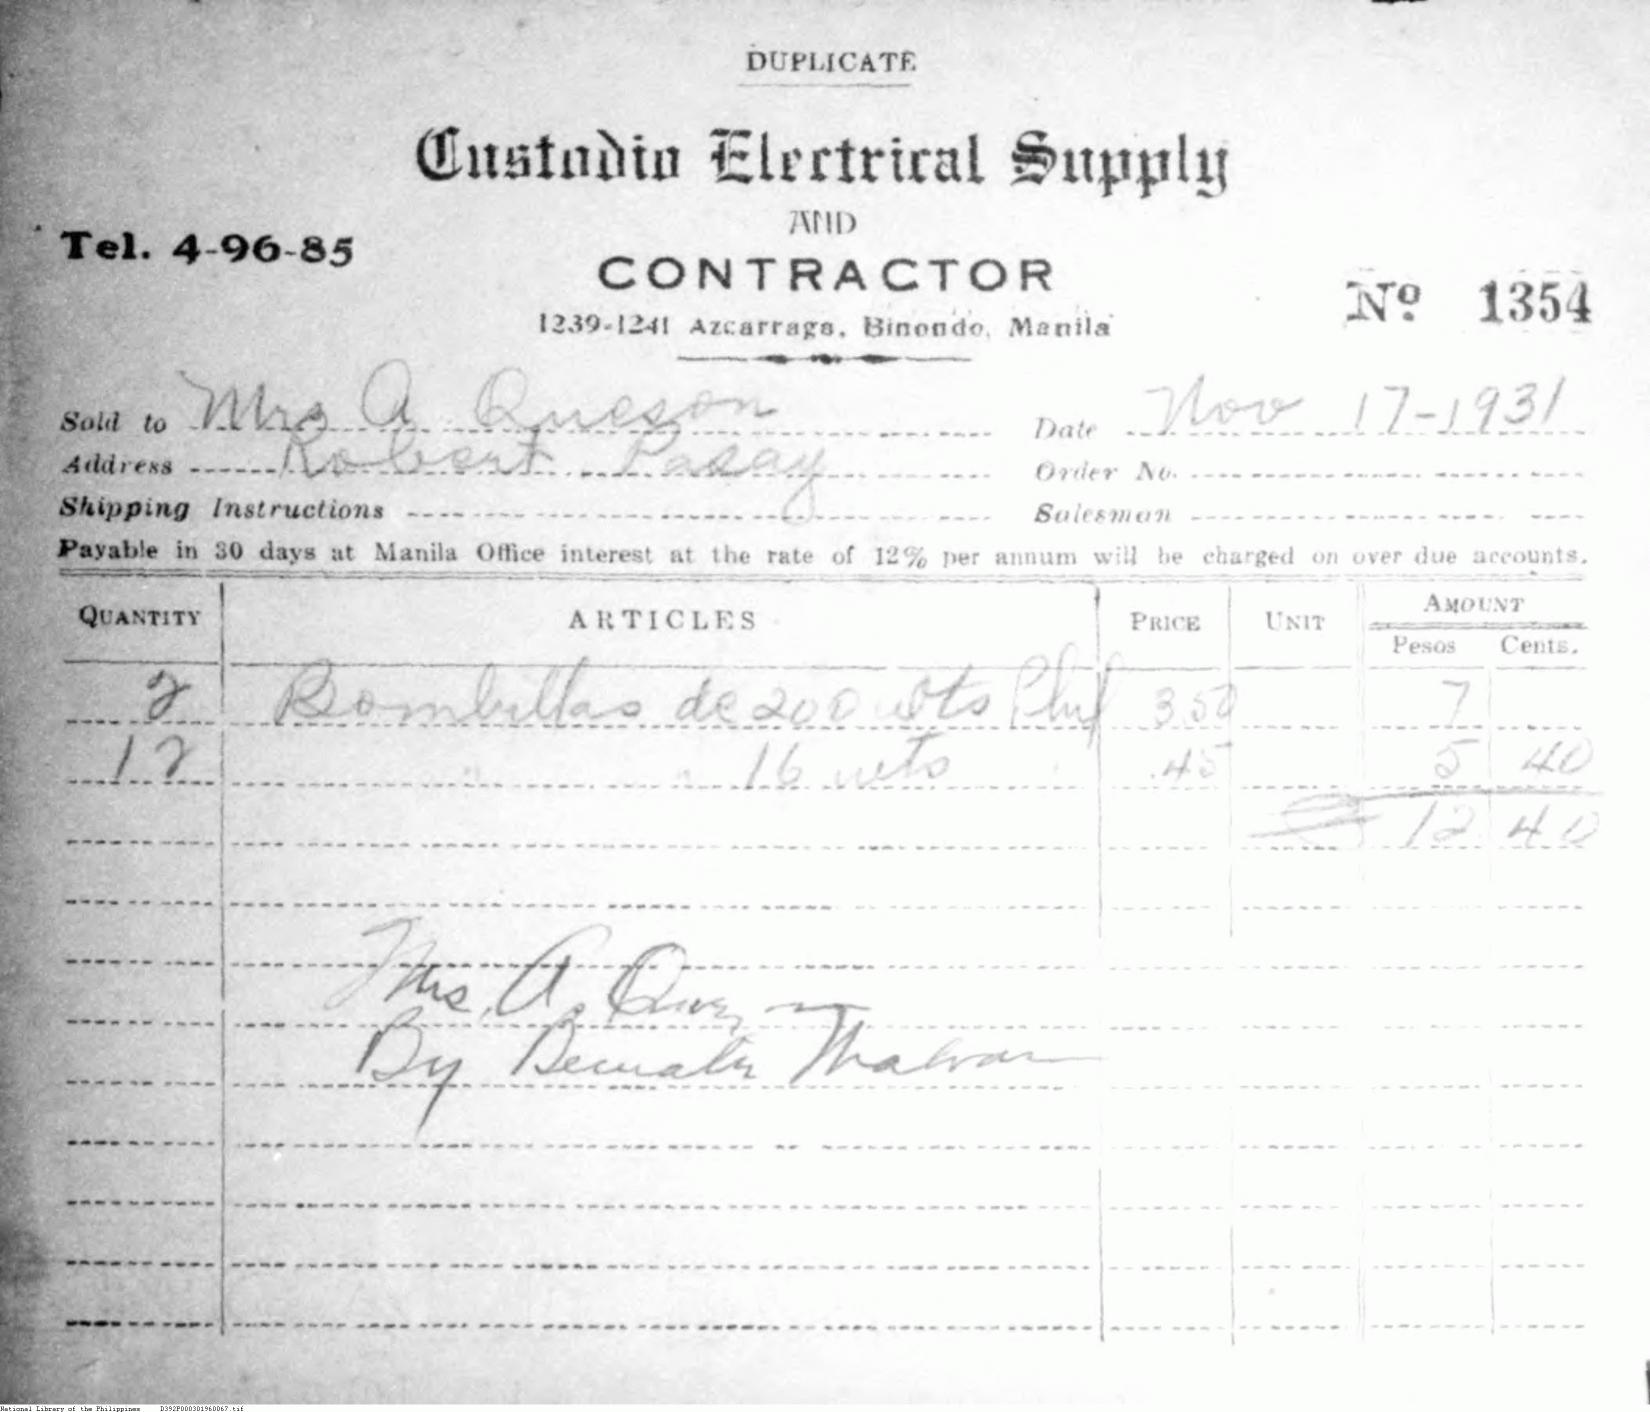 DUPLICATE
Custodio Electrical Supply
AND
CONTRACTOR
Tel. 4-96-85
1239-1241 Azcarraga, Binondo, Manila
Nº 1354
Sold to Mrs A Queson Date Nov 17-1931
Address Robert Pasay Order No.
Shipping Instructions Salesman
Payable in 30 days at Manila Office interest at the rate of 12% per annum will be charged on over due accounts.
QUANTITY ARTICLES PRICE UNIT AMOUNT
Pesos Cents.
2 Bombillas de 200 wts 3.50 7
12 " " 16 wts .45 5 40
12 40
Mrs. A.
By
National Library of the Philippines D392P000301960067.tif